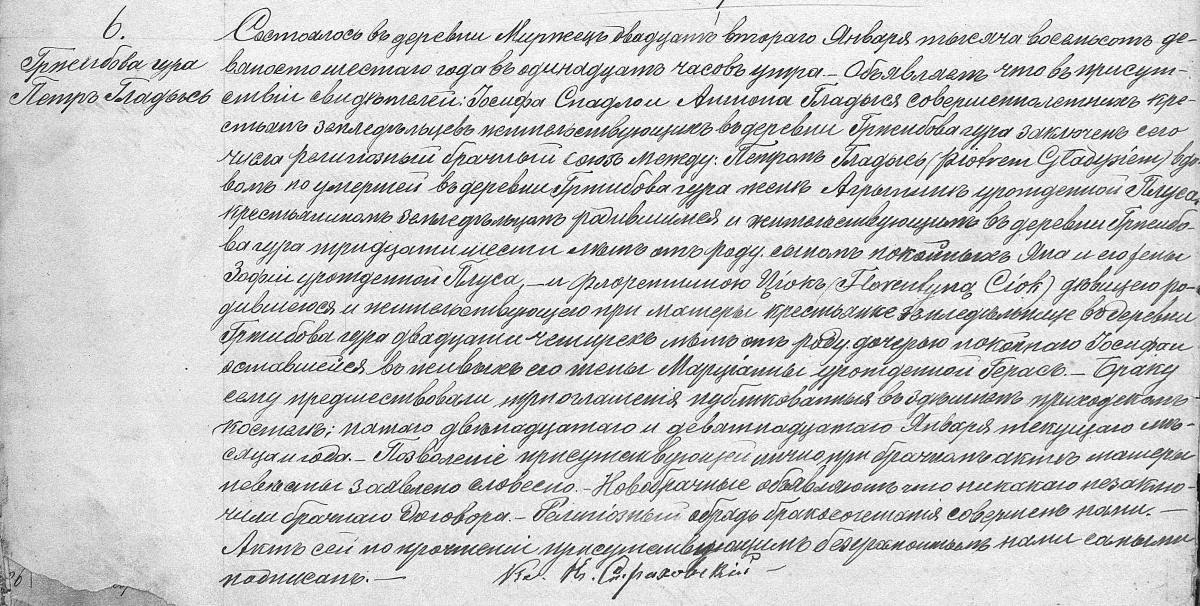 6.
Гржибова гура
Петръ Гладысь
Состоялось въ деревни Миржецъ двадцать втораго Января тысяча восемьсотъ де-
вяносто шестаго года въ одинадцать часовъ утра. — Объявляемъ что въ присут-
ствіи свидѣтелей: Іосифа Спадло и Антона Гладыся совершеннолетнихъ кре-
стьянъ земледѣльцевъ жительствующихъ въ деревни Гржибова гура заключенъ сего
числа религіозный брачный союзъ между: Петромъ Гладысь (Piotrem Gładysiem) вдо-
вомъ по умершей въ деревни Гржибова гура женѣ Агрыпинѣ урожденной Плуса,
крестьяниномъ земледѣльцемъ родившимся и жительствующимъ въ деревни Гржибо-
ва гура тридцати шести лѣтъ отъ роду, сыномъ покойныхъ Яна и его жены
Зофіи урожденной Плуса, — и Флорентиною Ціокъ (Florentyną Ciok) дѣвицею ро-
дившеюся и жительствующею при матери крестьянке земледѣльнице въ деревни
Гржибова гура двадцати четырехъ лѣтъ отъ роду, дочерью покойнаго Іосифа и
оставшейся въ живыхъ его жены Маріанны урожденной Герасъ. — Браку
сему предшествовали три оглашенія публикованныя въ здѣшнемъ приходскомъ
костелѣ: пятаго двѣнадцатаго и девятнадцатаго Января текущаго мѣ-
сяца и года. — Позволеніе присутствующей лично при брачномъ актѣ матери
невѣсты заявлено словесно. — Новобрачные объявляютъ что никакаго незаклю-
чили брачнаго договора. — Религіозный обрядъ бракосочетанія совершенъ нами. —
Актъ сей по прочтеніи присутствующимъ безграмотнымъ нами самыми
подписанъ. — Кс. К. Страховскій